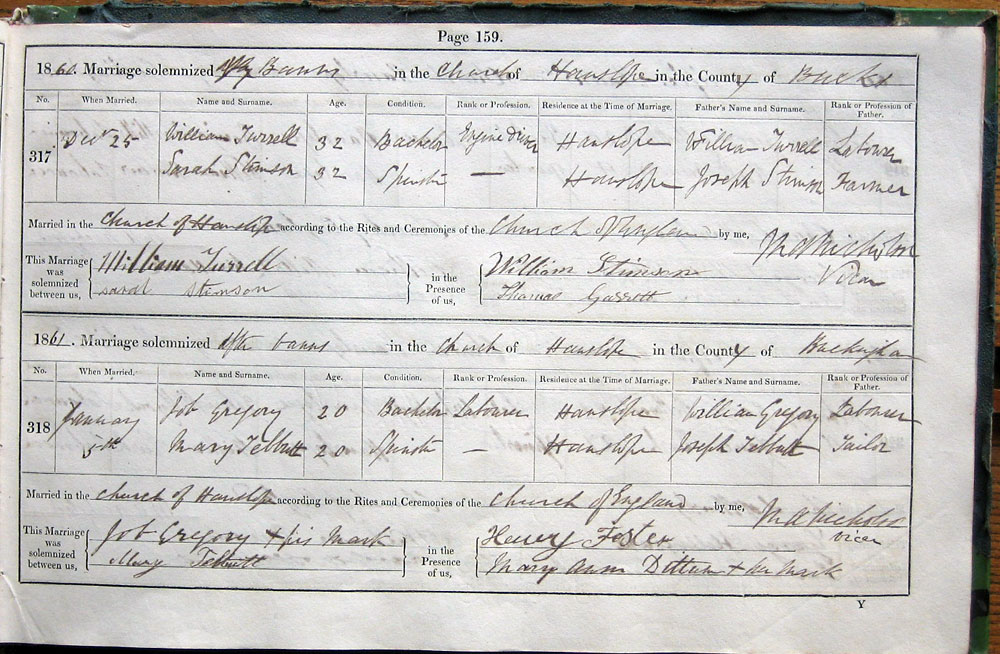 Page 159.
1860. Marriage solemnized by Banns in the Church of Hanslope in the County of Bucks
No. When Married. Name and Surname. Age. Condition. Rank or Profession. Residence at the Time of Marriage. Father's Name and Surname. Rank or Profession of Father.
317 Decr 25 William Turrell 32 Bachelor Engine driver Hanslope William Turrell Labourer
Sarah Stimson 32 Spinster — Hanslope Joseph Stimson Farmer
Married in the Church of Hanslope according to the Rites and Ceremonies of the Church of England by me, M A Nicholson
Vicar
This Marriage was solemnized between us, William Turrell in the Presence of us, William Stimson
Sarah Stimson Thomas Garrett
1861. Marriage solemnized after banns in the Church of Hanslope in the County of Buckingham
No. When Married. Name and Surname. Age. Condition. Rank or Profession. Residence at the Time of Marriage. Father's Name and Surname. Rank or Profession of Father.
318 January Job Gregory 20 Bachelor Labourer Hanslope William Gregory Labourer
5th Mary Tebbutt 20 Spinster — Hanslope Joseph Tebbutt Tailor
Married in the Church of Hanslope according to the Rites and Ceremonies of the Church of England by me, M A Nicholson
Vicar
This Marriage was solemnized between us, Job Gregory + his mark in the Presence of us, Henry Foster
Mary Tebbutt Mary Ann + her mark
Y